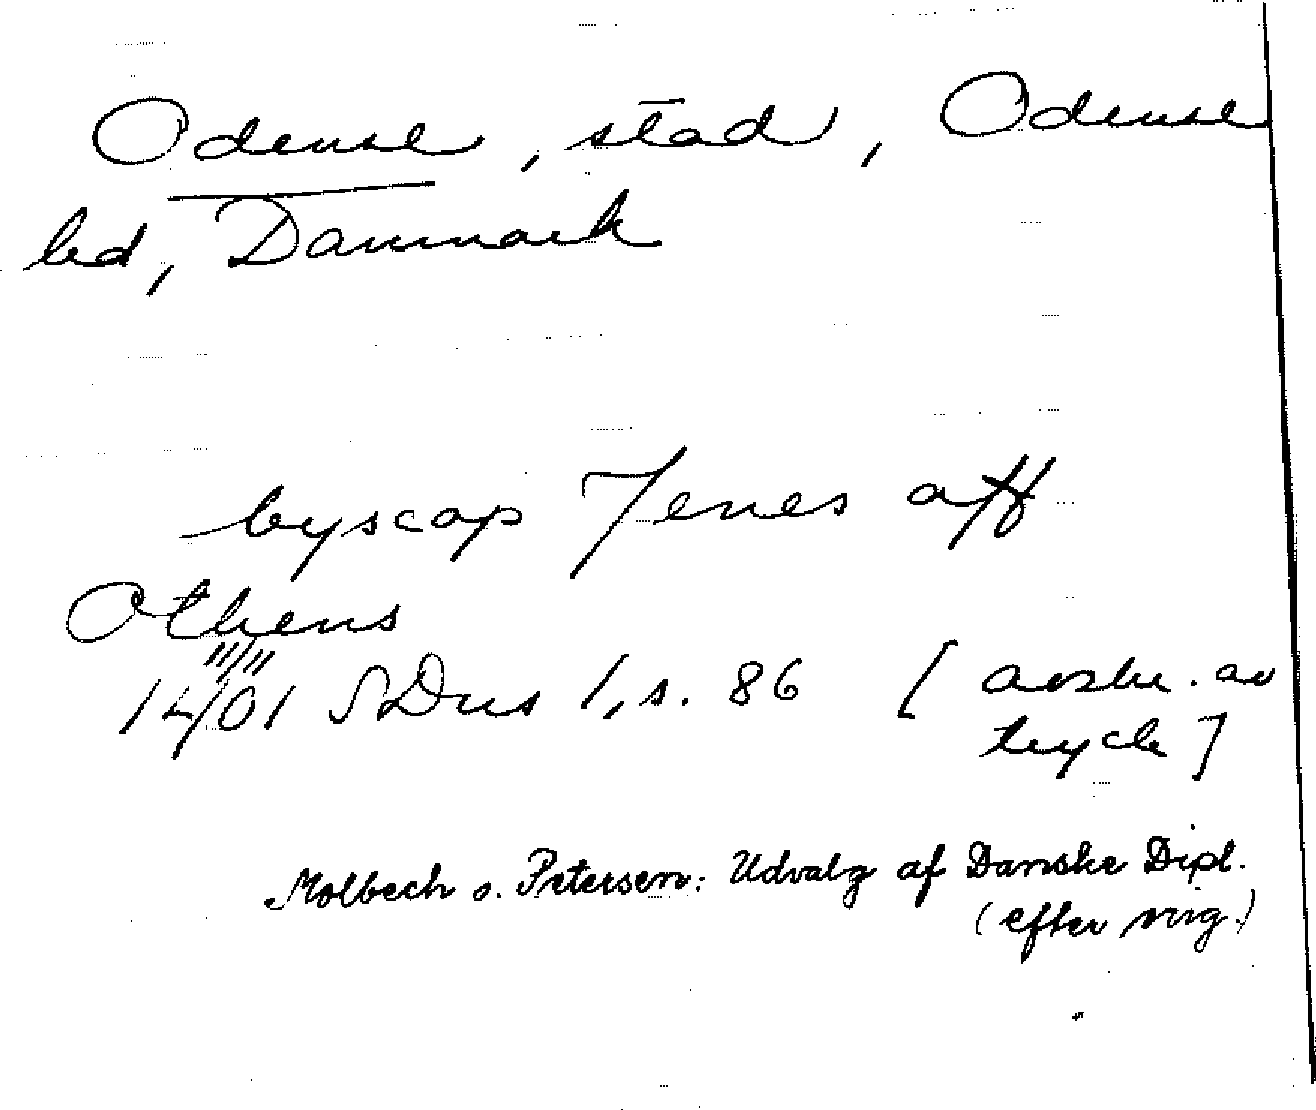 Odense, stad, Odense
hd, Danmark
byscop Jenes aff
Othens
14/01 SDns 1, s. 86 [avskr. av
tryck]
Molbech o. Petersen: Udvalg af Danske Dipl.
(efter orig.)